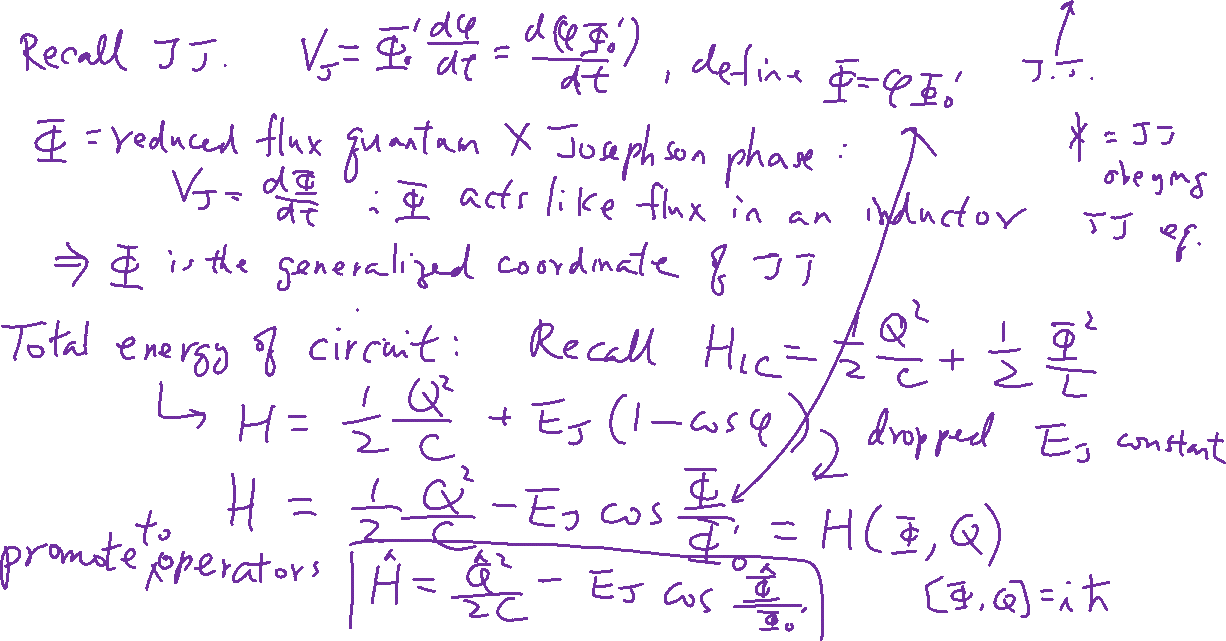 Recall JJ. V_J = Φ₀' dφ/dt = d(φΦ₀')/dt , define Φ = φΦ₀'
J.J.
Φ = reduced flux quantum X Josephson phase :
* = JJ
obeying
JJ eq.
V_J = dΦ/dt ∴ Φ acts like flux in an inductor
⇒ Φ is the generalized coordinate of JJ
Total energy of circuit : Recall H_LC = 1/2 Q²/C + 1/2 Φ²/L
↳ H = 1/2 Q²/C + E_J (1 - cos φ) dropped E_J constant
H = 1/2 Q²/C - E_J cos Φ/Φ₀' = H(Φ, Q)
promote to operators Ĥ = Q̂²/2C - E_J cos Φ̂/Φ₀' [Φ, Q] = iħ